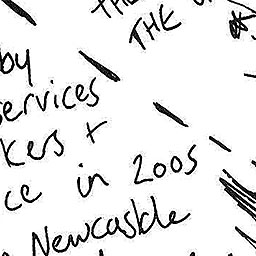 THE
by
services
kers +
ce in 2005
Newcastle